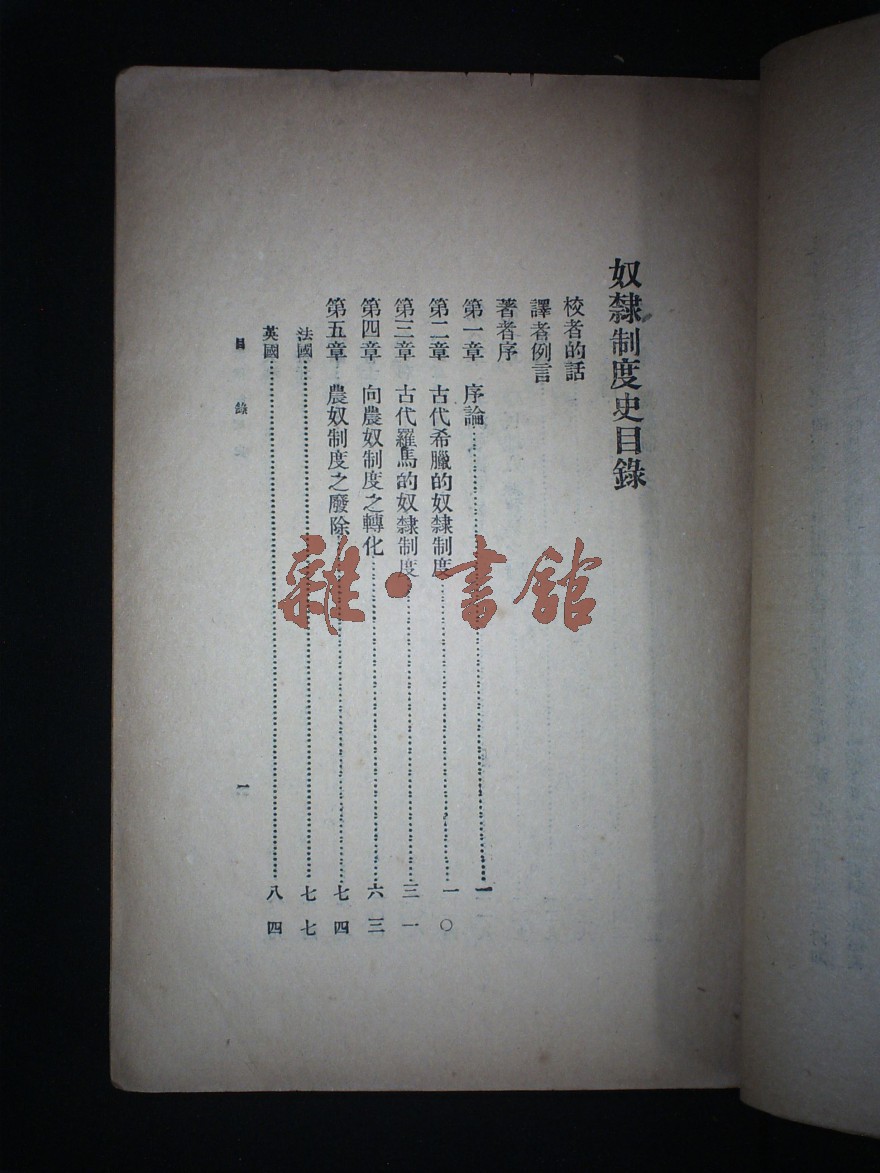 奴隸制度史目錄
校者的話
譯者例言
著者序
第一章 序論……一
第二章 古代希臘的奴隸制度……一〇
第三章 古代羅馬的奴隸制度……三一
第四章 向農奴制度之轉化……六三
第五章 農奴制度之廢除……七四
法國……七七
英國……八四
目錄
一
雜·書館